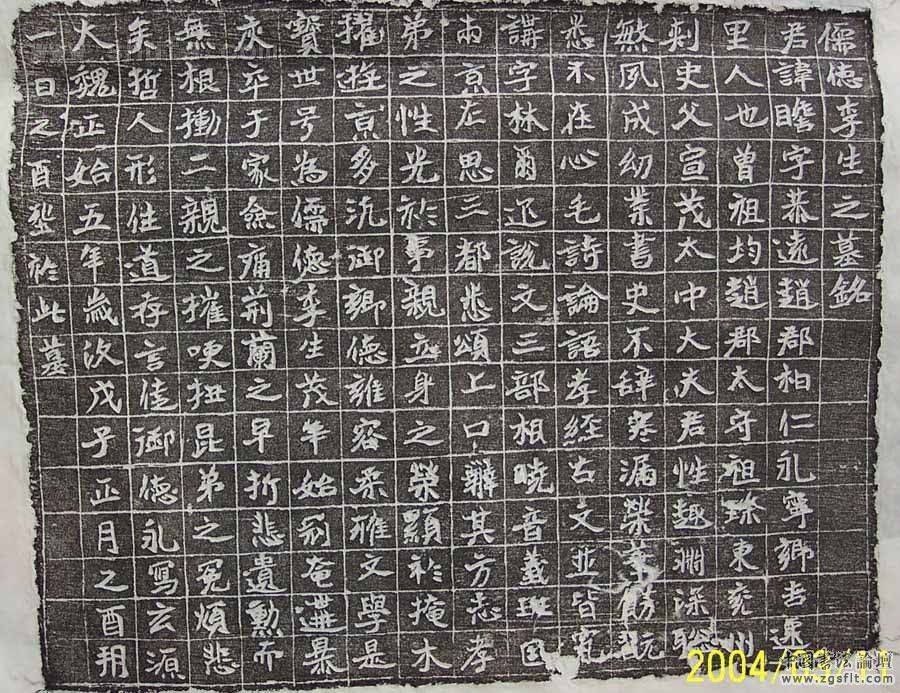 儒德李生之墓銘
君諱瞻字恭遠趙郡柏仁永寧鄉吉遷
里人也曾祖均趙郡太守祖璨東兗州
刺史父宣茂太中大夫君性趣淵深聡
敏夙成幼業書史不辭寒漏榮辛勝玩
悉不在心毛詩論語孝經古文並皆究
講字林爾疋說文三部相曉音義班固
兩京左思三都悉頌上口辯其方志孝
弟之性光於事親立身之榮顯於掩木
擢遊京多沉御鄉德雍容柔雅文學是
寶世号為儒德李生茂年始列奄遘暴
灾卒于家僉痛荊蘭之早折悲遺勲而
無根慟二親之摧哽抽昆弟之冤煩悲
矣哲人形往道存言佳御德永寫玄源
大魏正始五年歲次戊子正月乙酉朔
一日乙酉窆於此墓
2004/
中國書法論壇
www.zgsflt.com